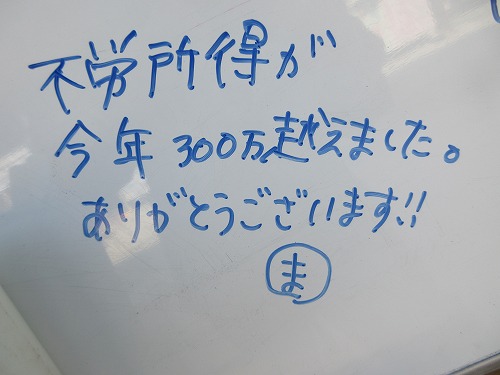 不労所得が
今年300万越えました。
ありがとうございます!!
ま